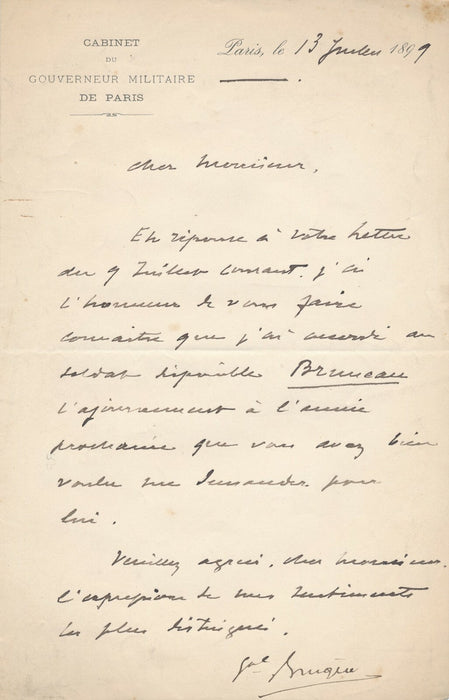 CABINET
DU
GOUVERNEUR MILITAIRE
DE PARIS
Paris, le 13 Juillet 1899
Cher Monsieur,
En réponse à votre lettre
du 9 Juillet courant, j'ai
l'honneur de vous faire
connaître que j'ai accordé au
soldat disponible Bruneau
l'ajournement à l'année
prochaine que vous avez bien
voulu me demander pour
lui.
Veuillez agréer, cher Monsieur,
l'expression de mes sentiments
les plus distingués.
Gal Brugère